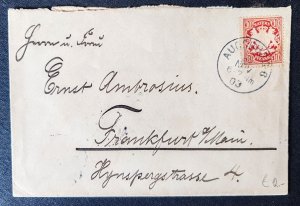 Herrn u. Frau
Ernst Ambrosius.
Frankfurt a/Main.
Hynspergstrasse 4.
BAYERN
10 10
AUG
03
€ 2.-